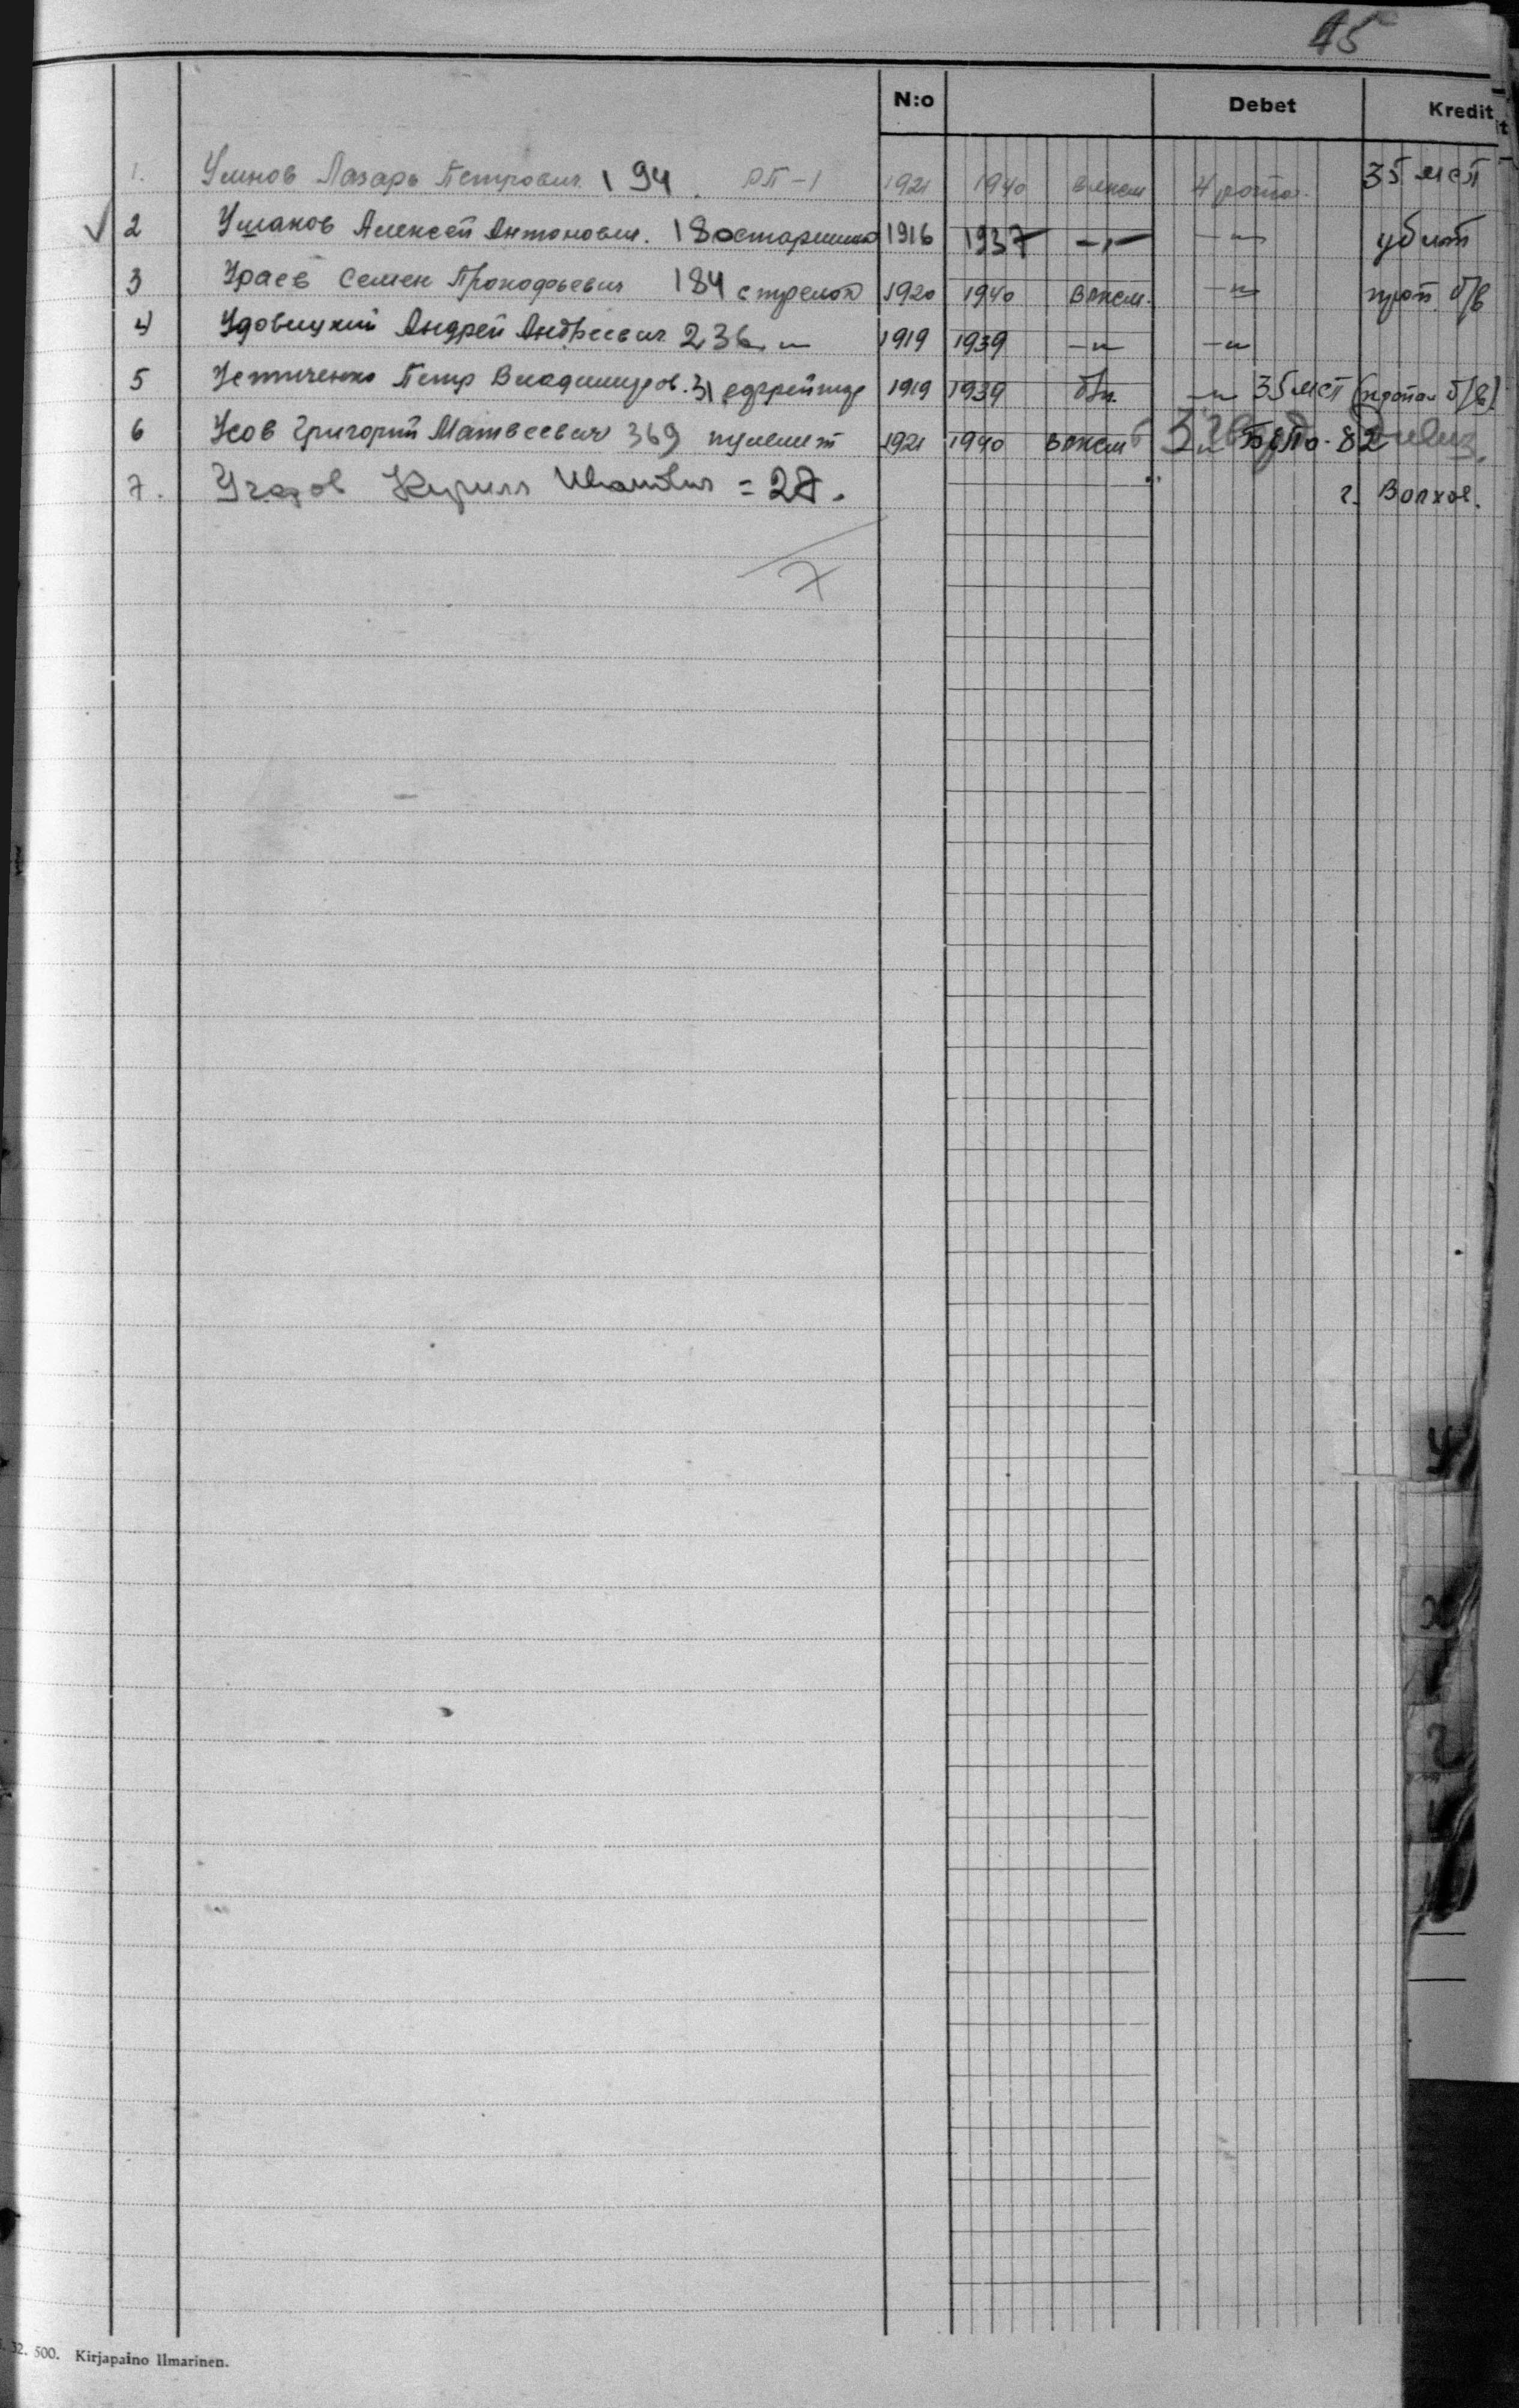 15
N:o Debet Kredit
1. Умнов Лазарь Петрович 194. РП-1 1921 1940 влксм 4 рота 35 мсп
2 Ушаков Алексей Антонович. 180 старшина 1916 1937 -"- -"- убит
3 Ураев Семен Прокофьевич 184 стрелок 1920 1940 влксм. -"- проп. б/в
4 Удовицкий Андрей Андреевич 236 -"- 1919 1939 -"- -"-
5 Устиченко Петр Владимиров. 31 ефрейтор 1919 1939 б/п. -"- 35 мсп (пропал б/в)
6 Усов Григорий Матвеевич 369 пулемет 1921 1940 влксм 82
7. Кирилл = 27. г. Волхов.
7
У
2
32. 500. Kirjapaino Ilmarinen.